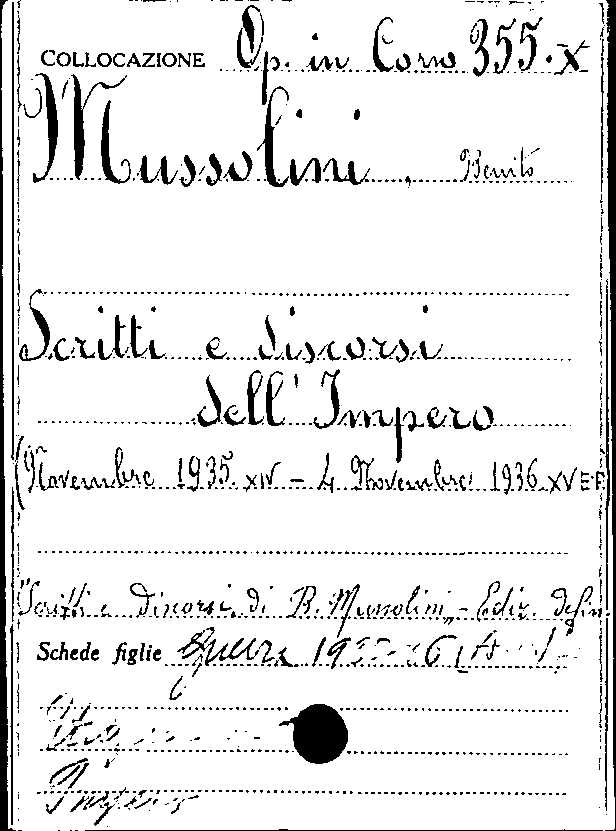 COLLOCAZIONE Op. in Corso 355.X
Mussolini, Benito
Scritti e discorsi
dell'Impero
(Novembre 1935.XIV – 4 Novembre 1936.XV E.F.
"Scritti e Discorsi di B. Mussolini" - Ediz. defin.
Schede figlie Guerra 1935-36
Impero